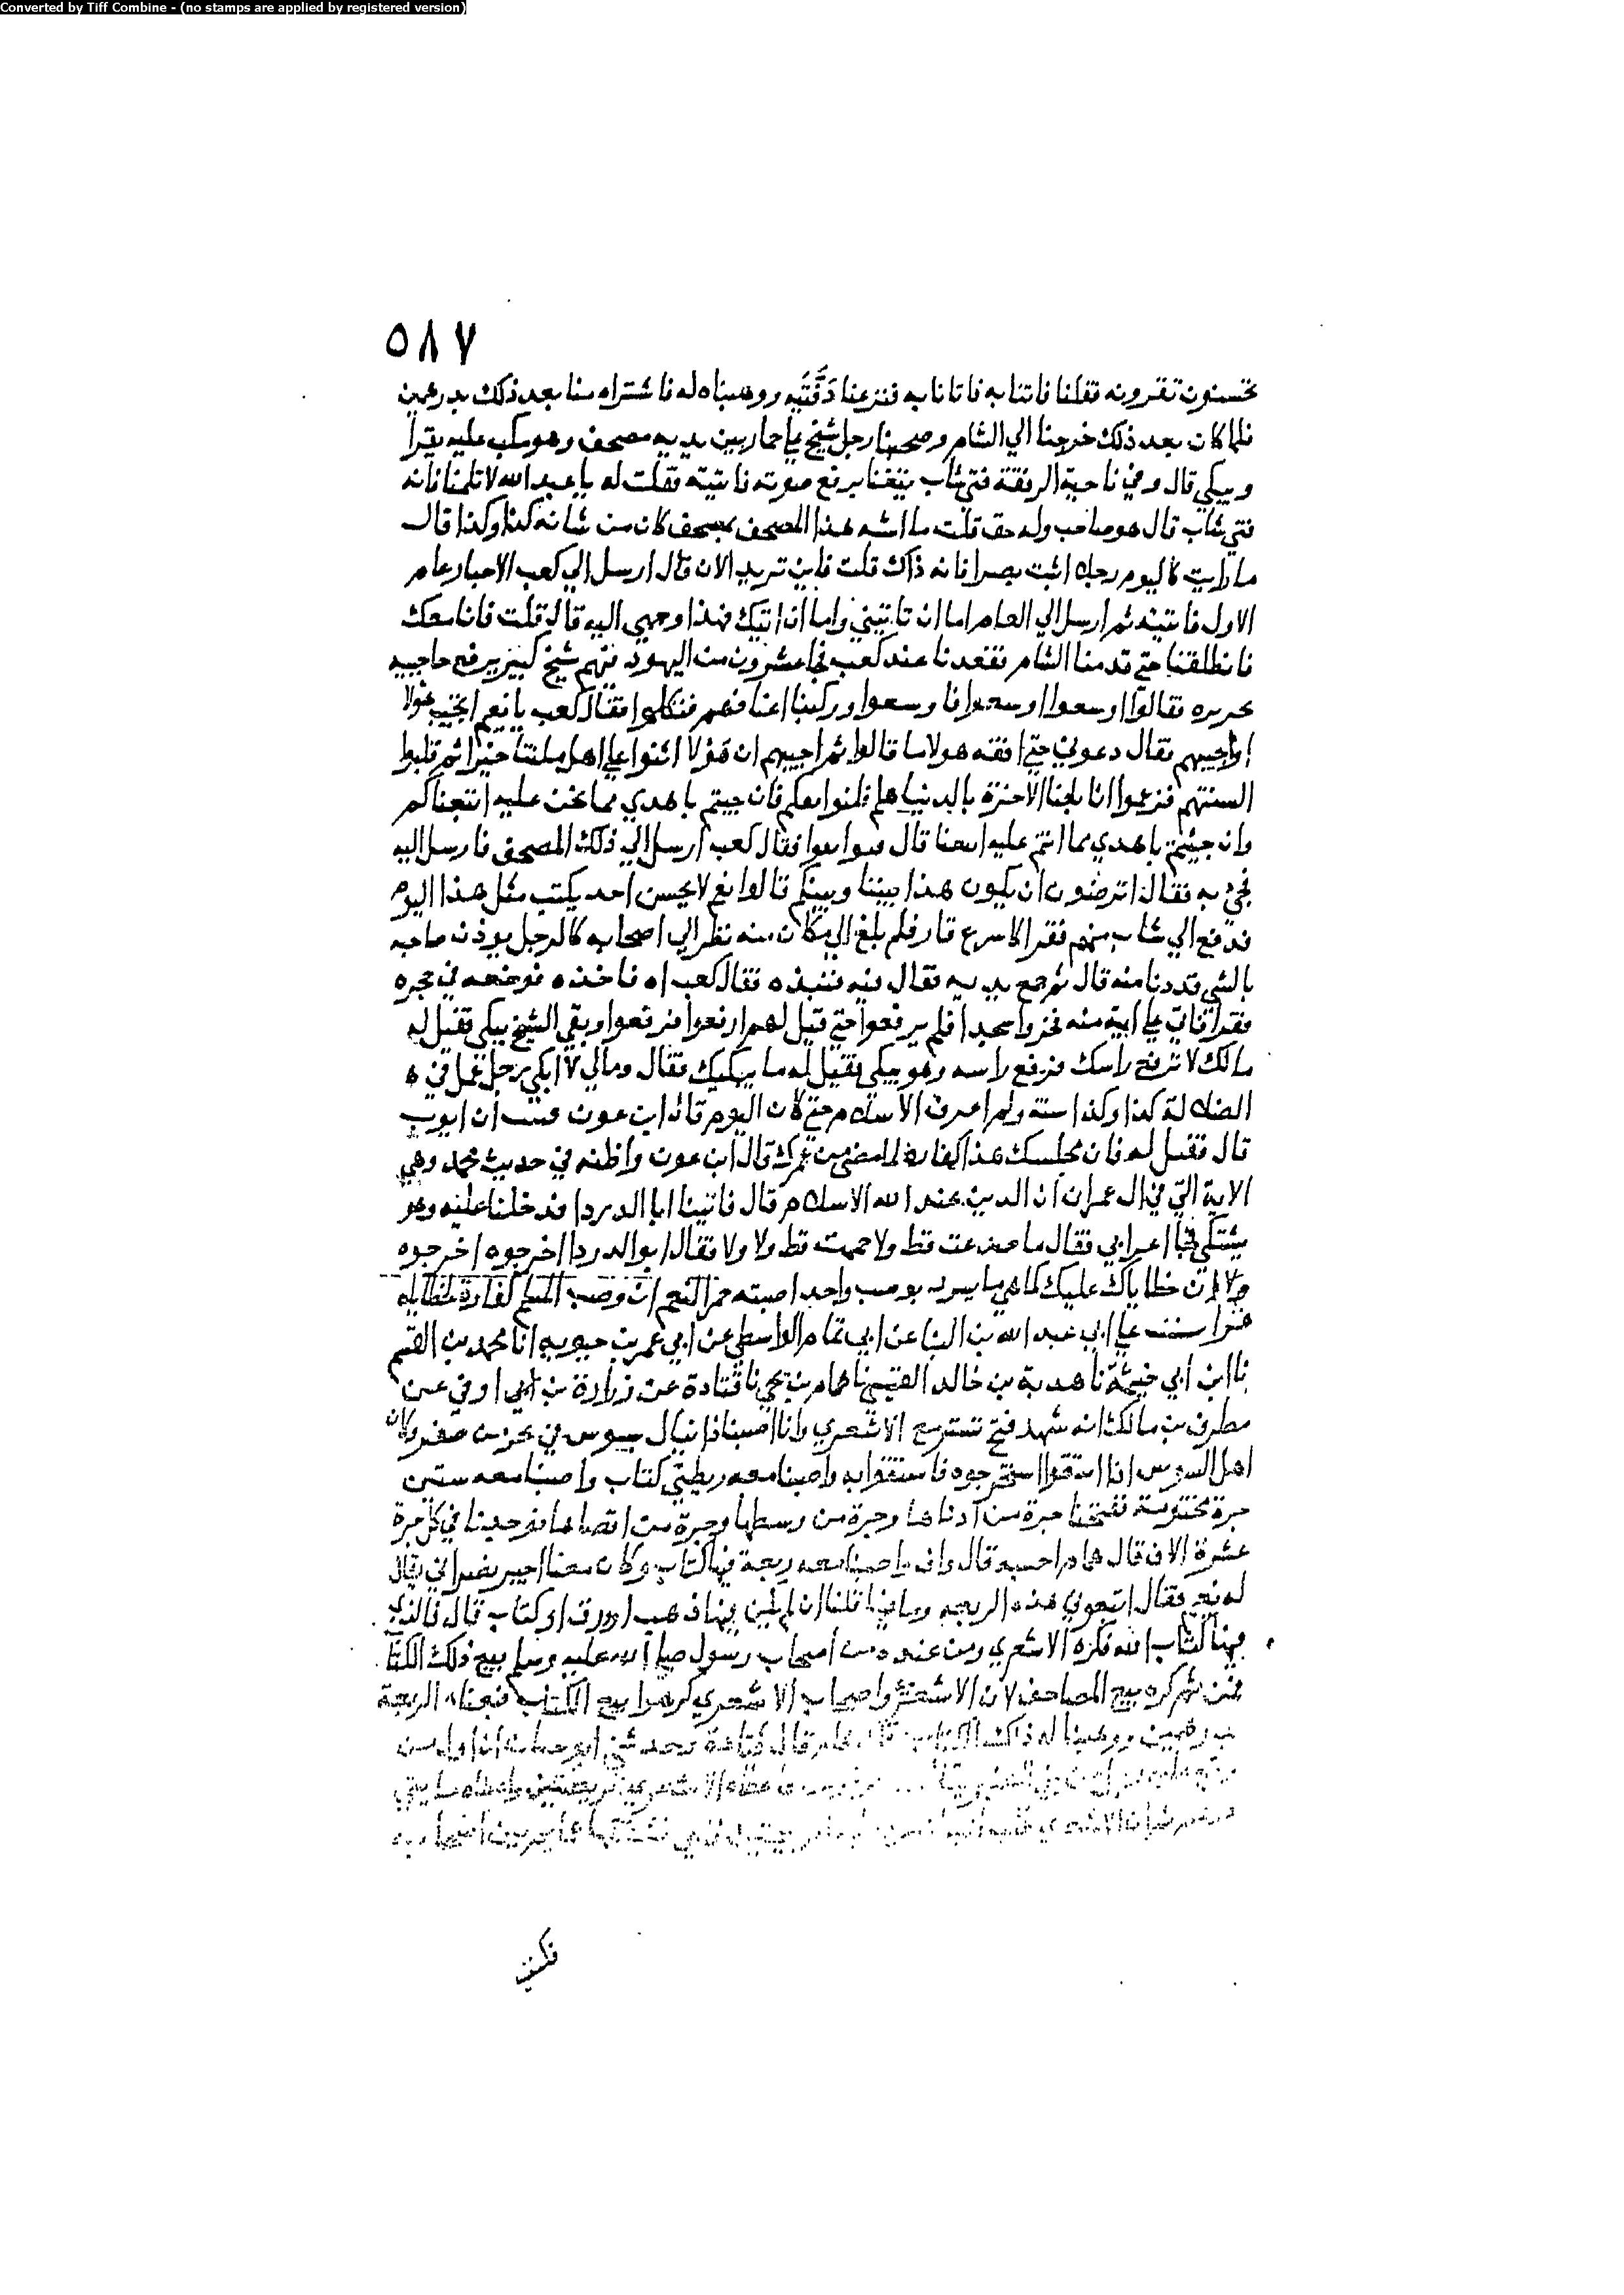 Converted by Tiff Combine - (no stamps are applied by registered version)
٥٨٧
تحسنون تقرونه فقلنا فاتنا به فاتانا به فنزعنا دَفَّتَيه ووهبناه له فاشتراه منا بعد ذلك بدرهمين
فلما كان بعد ذلك خرجنا الي الشام وصحبنا رجل شيخ علي حمار بين يديه مصحف وهو مكب عليه يقرا
ويبكي قال وفي ناحية الرفقة فتي شاب يتغنا يرفع صوته فاتيته فقلت له يا عبد الله لا تلمنا فانه
فتي شاب قال هو صاحب وله حق قلت ما اشبه هذا المصحف بمصحف كان من شانه كذا وكذا قال
ما رايت كاليوم رجلا اثبت بصرا فانه ذاك قلت فاين تريد الان قال ارسل الي كعب الاحبار عام
الاول فاتيته ثم ارسل الي العام اما ان تاتيني واما ان اتيك فهذا وجهي اليه قال قلت فانا معك
فانطلقنا حتي قدمنا الشام فقعدنا عند كعب فجا عشرون من اليهود فيهم شيخ كبير يرفع حاجبيه
بحريره فقالوا اوسعوا اوسعوا فاوسعوا وركبنا اعناقهم فتكلموا فقال كعب يا نعيم اتجيب هولا
او اجيبهم فقال دعوني حتي افقه هولا ما قالوا ثم اجيبهم ان هؤلا اثنوا علي اهل ملتنا خيرا ثم قلبوا
السنتهم فزعموا انا بعنا الآخرة بالدنيا هلم فلنواثقكم فان جيتم باهدي مما نحن عليه اتبعناكم
وان جئتم باهدي مما انتم عليه قال فتواثقوا فقال كعب ارسل الي ذلك المصحف فارسل اليه
فجئ به فقال اترضون ان يكون هذا بيننا وبينكم قالوا نعم لا يحسن احد يكتب مثل هذا اليوم
فدفع الي شاب منهم فقرا كاسرع قار فلم بلغ الي مكان منه نظر الي اصحابه كالرجل يوذن صاحبه
بالشي قد دنا منه قال ثم جمع يديه فقال به فنبذه فقال كعب اه فاخذه فوضعه في حجره
فقرا فاتي علي اية منه فخروا سجدا فلم يرفعوا حتي قيل لهم ارفعوا فرفعوا وبقي الشيخ يبكي فقيل له
مالك لا ترفع راسك فرفع راسه وهو يبكي فقيل له ما يبكيك فقال ومالي لا ابكي رجل عمل في
الضلالة كذا وكذا سنة ولم اعرف الاسلام حتي كان اليوم قال ابن عون ان ايوب
قال فقيل له فان مجلسك هذا كفارة لما مضي من عمرك قال ابن عون واظنه في حديث محمد وهي
الاية التي في ال عمران ان الدين عند الله الاسلام قال فاتينا ابا الدردا فدخلنا عليه وهو
يشتكي فجا اعرابي فقال ما صدعت قط ولا حممت قط ولا ولا فقال ابو الدردا اخرجوه اخرجوه
خطاياك عليك كما هي ما يسرني بوصب واحد اصبته حمر النعم ان وصب المسلم كفارة لخطاياه
علي ابي عبد الله بن البنا عن ابي تمام الواسطي عن ابي عمر بن حيويه انا محمد بن القسم
نا ابن ابي خيثمة نا هدبة بن خالد القيسي نا همام بن يحيي نا قتادة عن زرارة بن ابي اوفي عن
مطرف بن مالك انه شهد فتح تستر مع الاشعري وانا اصبنا دانيال بالسوس في بحر من صفر وكان
اهل السوس اذا استقوا استخرجوه فاستسقوا به واصبنا معه ريطتي كتان واصبنا معه ستين
جرة مختومة ففتحنا جرة من ادناها وجرة من وسطها وجرة من اقصاها فوجدنا في كل جرة
عشرة الاف قال همام احسبه قال واصبنا معه ربعة فيها كتاب وكان معنا اجير نصراني يقال
له نعيم فقال اتبيعوني هذه الربعه وما فيها قلنا ان لم يكن فيها ذهب او ورق او كتاب قال فالذي
فيها كتاب الله فكره الاشعري ومن عنده من اصحاب رسول صلي الله عليه وسلم بيع ذلك الكتا
فمن ثم كره بيع المصاحف لان الاشعري واصحاب الاشعري كرهوا بيع الكتاب فبعناه الربعة
بدرهمين ووهبنا له ذاك الكتاب قال همام قال قتادة فحدثني ابو حسان ان اول من
فاعطاه الاشعري ريطتين واعطاه مايتي
ثم ان الاشعري
فكفن